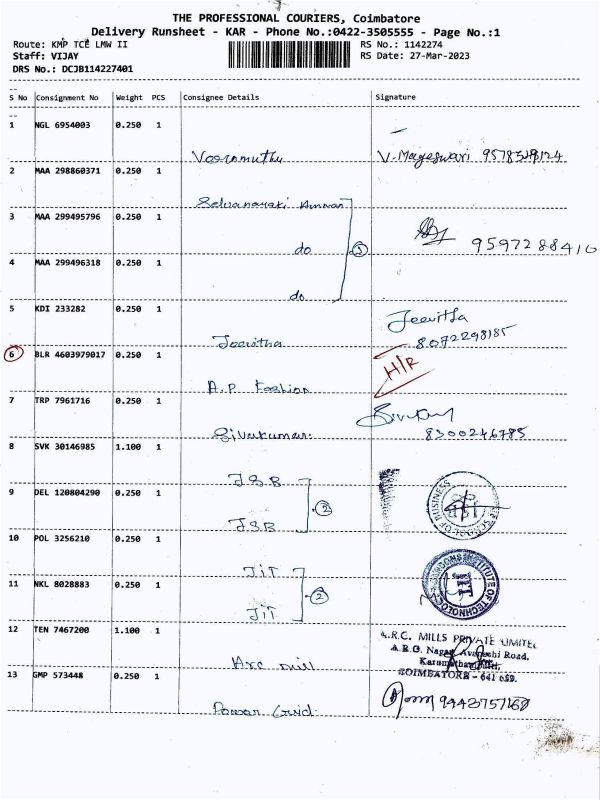 THE PROFESSIONAL COURIERS, Coimbatore
Delivery Runsheet - KAR - Phone No.:0422-3505555 - Page No.:1
Route: KMP TCE LMW II
RS No.: 1142274
Staff: VIJAY
RS Date: 27-Mar-2023
DRS No.: DCJB114227401
S No Consignment No Weight PCS Consignee Details Signature
1 NGL 6954003 0.250 1
V. Mageswari
2 MAA 298860371 0.250 1
3 MAA 299495796 0.250 1
do 3 9597288410
4 MAA 299496318 0.250 1
do
5 KDI 233282 0.250 1
Jeevitha
Jeevitha 8072298185
6 BLR 4603979017 0.250 1
H/R
A.P. Fashion
7 TRP 7961716 0.250 1
Sivakumar 8300246785
8 SVK 30146985 1.100 1
JSB
9 DEL 120804290 0.250 1
2 SCHOOL OF BUSINESS
JSB
10 POL 3256210 0.250 1
JIT
11 NKL 8028883 0.250 1
2 INSTITUTE OF TECHNOLOGY
JIT
12 TEN 7467200 1.100 1
A.R.C. MILLS PRIVATE LIMITED
A.R.C. Nagar, Avanashi Road,
Arc mill
COIMBATORE - 641 659.
13 GMP 573448 0.250 1
9443757168
Power Grid